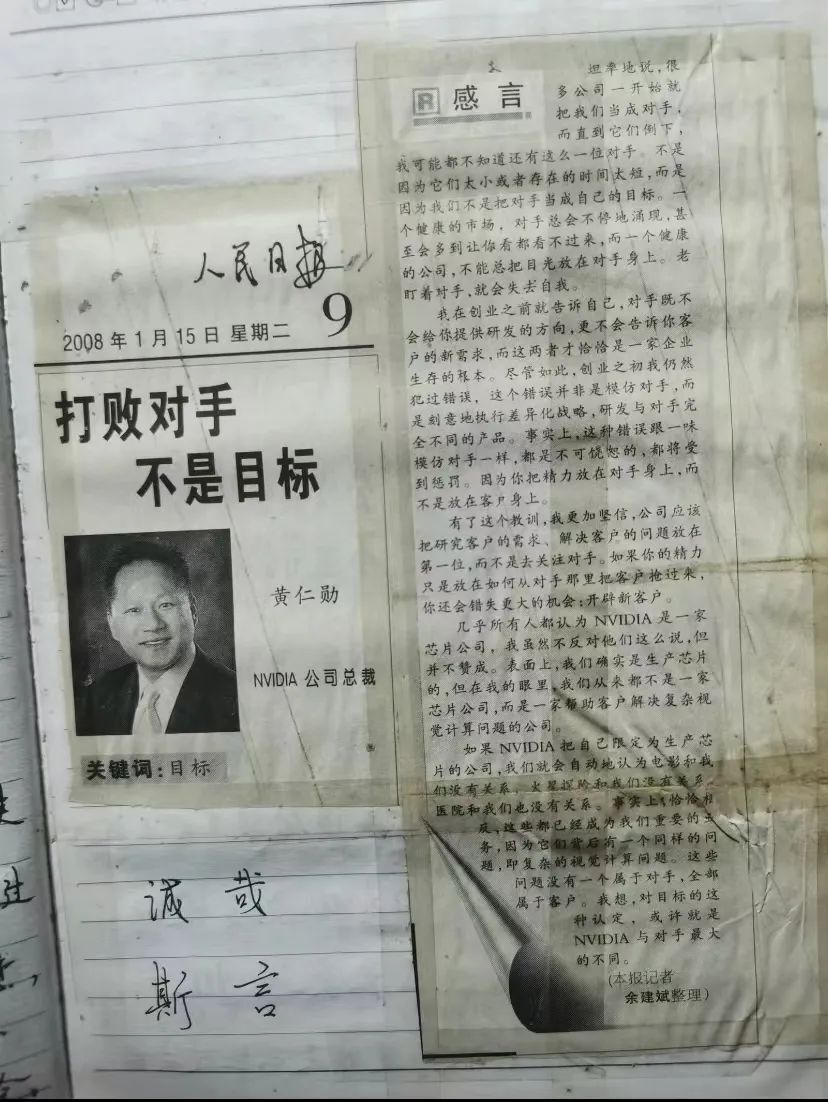 人民日报
2008年1月15日 星期二
9
打败对手
不是目标
黄仁勋
NVIDIA 公司总裁
关键词:目标
诚哉
斯言
R 感言
坦率地说,很
多公司一开始就
把我们当成对手,
而直到它们倒下,
我可能都不知道还有这么一位对手。不是
因为它们太小或者存在的时间太短,而是
因为我们不是把对手当成自己的目标。一
个健康的市场,对手总会不停地涌现,甚
至会多到让你看都看不过来,而一个健康
的公司,不能总把目光放在对手身上。老
盯着对手,就会失去自我。
我在创业之前就告诉自己,对手既不
会给你提供研发的方向,更不会告诉你客
户的新需求,而这两者才恰恰是一家企业
生存的根本。尽管如此,创业之初我仍然
犯过错误,这个错误并非是模仿对手,而
是刻意地执行差异化战略,研发与对手完
全不同的产品。事实上,这种错误跟一味
模仿对手一样,都是不可饶恕的,都将受
到惩罚。因为你把精力放在对手身上,而
不是放在客户身上。
有了这个教训,我更加坚信,公司应该
把研究客户的需求、解决客户的问题放在
第一位,而不是去关注对手。如果你的精力
只是放在如何从对手那里把客户抢过来,
你还会错失更大的机会:开辟新客户。
几乎所有人都认为 NVIDIA 是一家
芯片公司,我虽然不反对他们这么说,但
并不赞成。表面上,我们确实是生产芯片
的,但在我的眼里,我们从来都不是一家
芯片公司,而是一家帮助客户解决复杂视
觉计算问题的公司。
如果 NVIDIA 把自己限定为生产芯
片的公司,我们就会自动地认为电影和我
们没有关系,火星探险和我们没有关系,
医院和我们也没有关系。事实上,恰恰相
反,这些都已经成为我们重要的业
务,因为它们背后有一个同样的问
题,即复杂的视觉计算问题。这些
问题没有一个属于对手,全部
属于客户。我想,对目标的这
种认定,或许就是
NVIDIA 与对手最大
的不同。
(本报记者
余建斌整理)